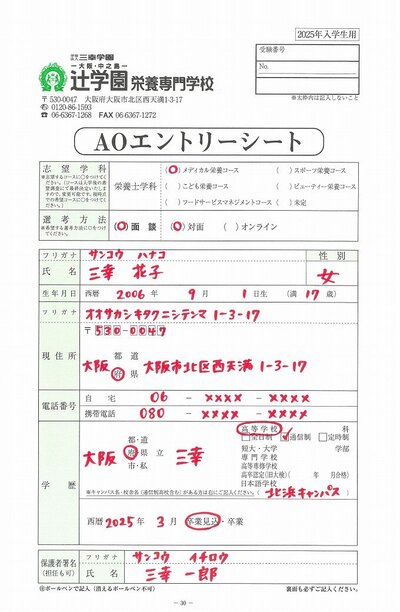 2025年入学生用
学校法人 三幸学園
ー大阪・中之島ー
辻学園 栄養専門学校
〒530-0047 大阪府大阪市北区西天満1-3-17
0120-86-1593
☎ 06-6367-1268 FAX 06-6367-1272
受験番号
※太枠内は記入しないこと
AOエントリーシート
志望学科
栄養士学科
(○)メディカル栄養コース ( )スポーツ栄養コース
( )こども栄養コース ( )ビューティー栄養コース
( )フードサービスマネジメントコース ( )未定
選考方法
(○)面談 (○)対面 ( )オンライン
フリガナ サンコウ ハナコ 性別
氏名 三幸 花子 女
生年月日 西暦 2006年 9月 1日生 (満17歳)
フリガナ オオサカシキタクニシテンマ1-3-17
現住所 〒530-0047
大阪 都道府県 大阪市北区西天満1-3-17
電話番号 自宅 06 - ×××× - ××××
携帯電話 080 - ×××× - ××××
学歴
大阪 都・道・府・県・市・私 立 三幸
高等学校 科
□全日制 ☑通信制 □定時制
短大・大学 学部
専門学校
高等専修学校
高卒認定(旧大検)( 年 月合格)
日本語学校
※キャンパス名・校舎名(通信制高校含む)がある方は右にご記入ください。( 北浜キャンパス )
西暦 2025年 3月 卒業見込・卒業
保護者署名 (担任も可)
フリガナ サンコウ イチロウ
氏名 三幸 一郎
※ボールペンで記入(消えるボールペン不可) 裏面も必ずご記入ください。
- 30 -